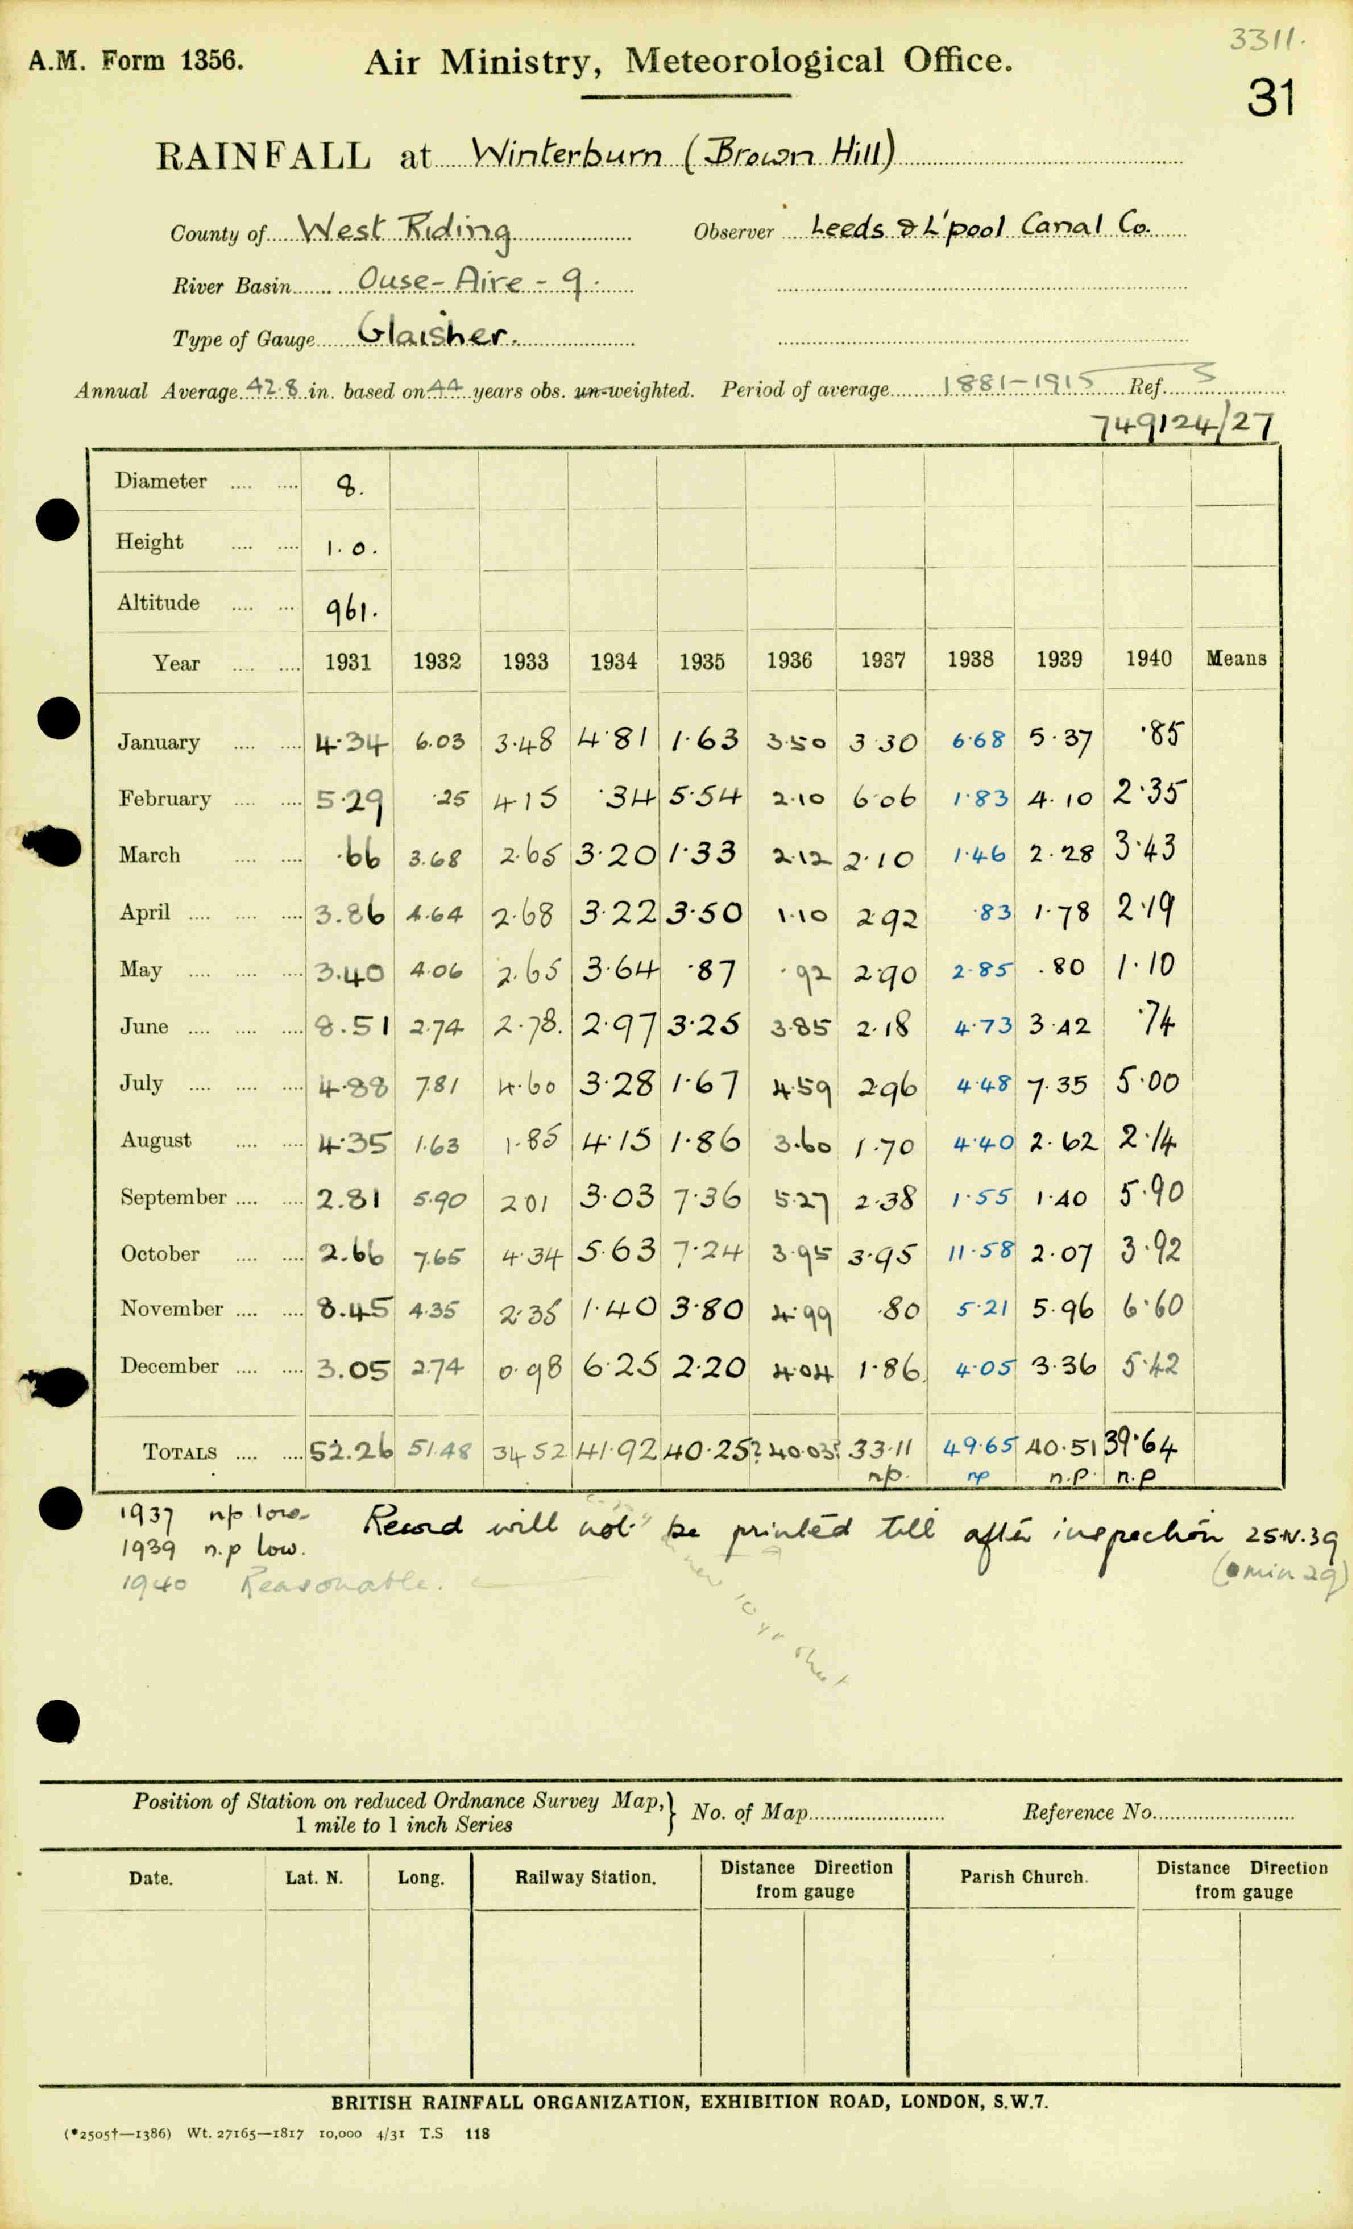 3311.
A.M. Form 1356.
Air Ministry, Meteorological Office.
31
RAINFALL at Winterburn (Brown Hill)
County of West Riding Observer Leeds & L'pool Canal Co.
River Basin Ouse-Aire - 9.
Type of Gauge Glaisher.
Annual Average 42.8 in. based on 44 years obs. un-weighted. Period of average 1881-1915 Ref. S
749124/27
Diameter 8.
Height 1.0.
Altitude 961.
Year 1931 1932 1933 1934 1935 1936 1937 1938 1939 1940 Means
January 4.34 6.03 3.48 4.81 1.63 3.50 3.30 6.68 5.37 .85
February 5.29 .25 4.15 .34 5.54 2.10 6.06 1.83 4.10 2.35
March .66 3.68 2.65 3.20 1.33 2.12 2.10 1.46 2.28 3.43
April 3.86 4.64 2.68 3.22 3.50 1.10 2.92 .83 1.78 2.19
May 3.40 4.06 2.65 3.64 .87 .92 2.90 2.85 .80 1.10
June 8.51 2.74 2.78. 2.97 3.25 3.85 2.18 4.73 3.42 .74
July 4.88 7.81 4.60 3.28 1.67 4.59 2.96 4.48 7.35 5.00
August 4.35 1.63 1.85 4.15 1.86 3.60 1.70 4.40 2.62 2.14
September 2.81 5.90 2.01 3.03 7.36 5.27 2.38 1.55 1.40 5.90
October 2.66 7.65 4.34 5.63 7.24 3.95 3.95 11.58 2.07 3.92
November 8.45 4.35 2.35 1.40 3.80 4.99 .80 5.21 5.96 6.60
December 3.05 2.74 0.98 6.25 2.20 4.04 1.86 4.05 3.36 5.42
TOTALS 52.26 51.48 34.52 41.92 40.25? 40.03? 33.11 49.65 40.51 39.64
np. np n.p. n.p
1937 np low
1939 n.p low.
1940 Reasonable.
Record will not be printed till after inspection 25.IV.39
new 10 yr sheet
Position of Station on reduced Ordnance Survey Map,
1 mile to 1 inch Series
No. of Map Reference No.
Date. Lat. N. Long. Railway Station. Distance Direction from gauge Parish Church. Distance Direction from gauge
BRITISH RAINFALL ORGANIZATION, EXHIBITION ROAD, LONDON, S.W.7.
(*2505†—1386) Wt. 27165—1817 10,000 4/31 T.S 118